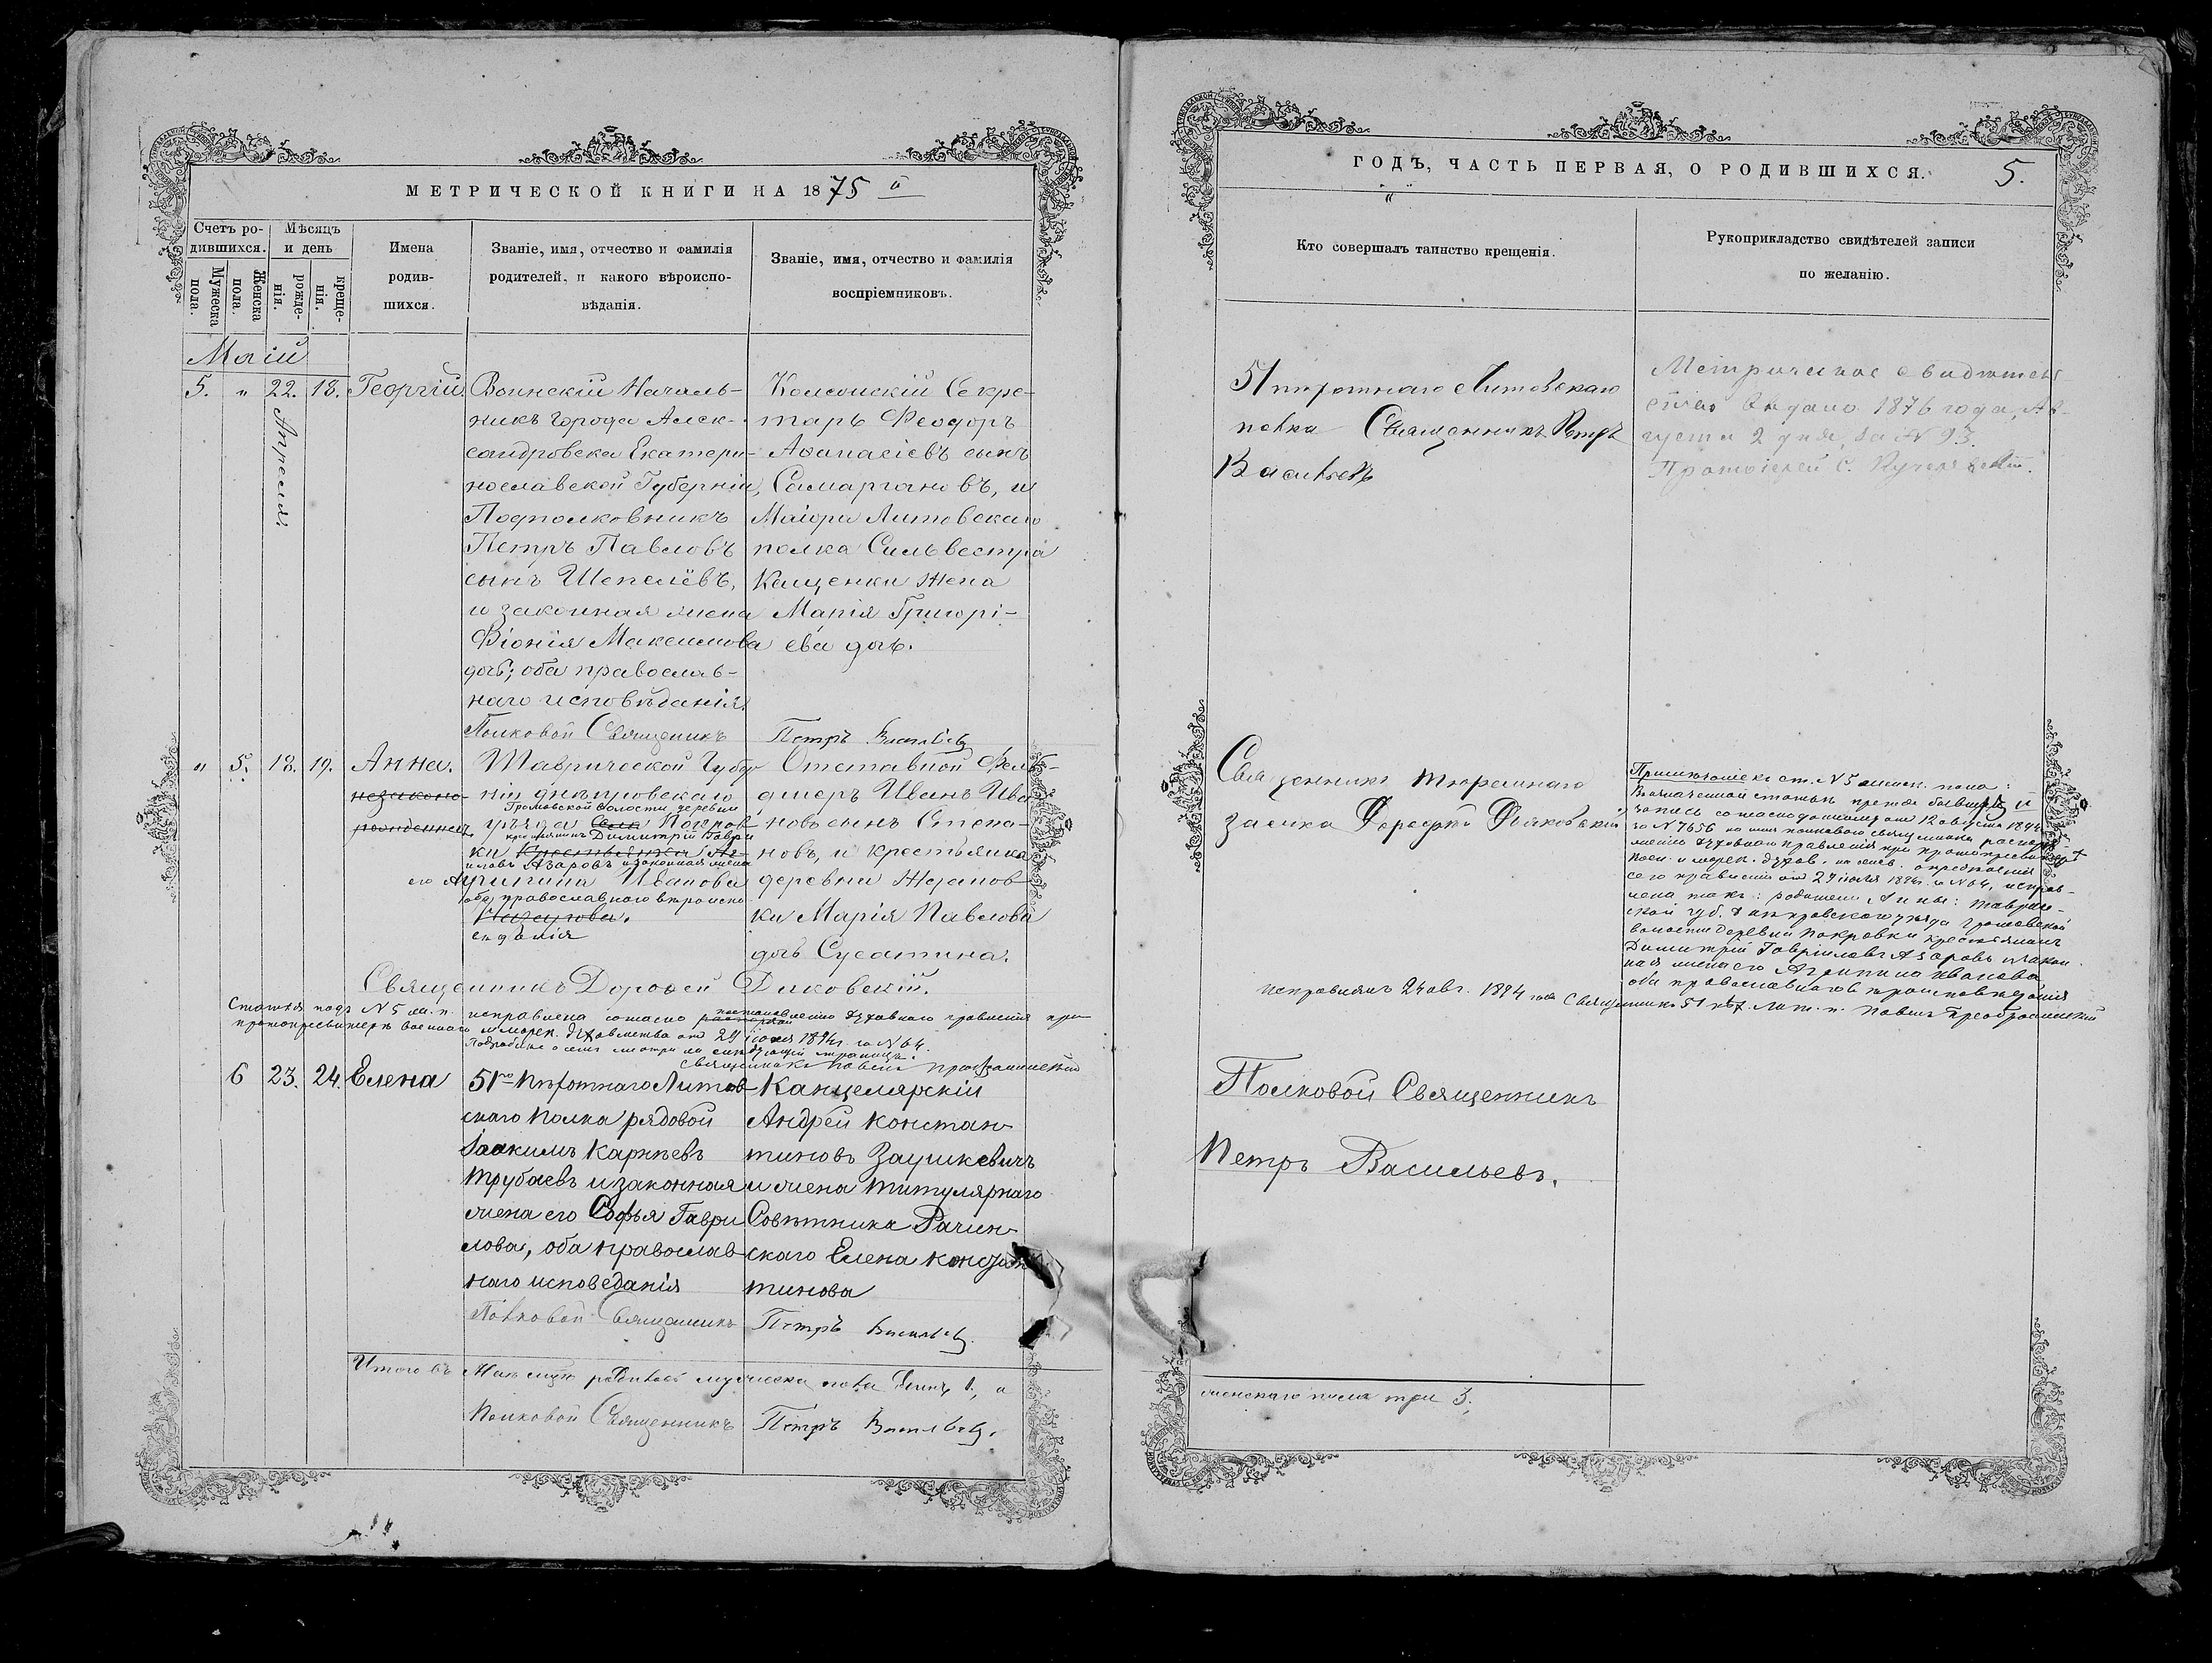 МЕТРИЧЕСКОЙ КНИГИ НА 1875 й
Счетъ родившихся.
Мужеска пола.
Женска пола.
Мѣсяцъ и день
рожденія.
крещенія.
Имена родив-
шихся.
Званіе, имя, отчество и фамилія
родителей, и какого вѣроиспо-
вѣданія.
Званіе, имя, отчество и фамилія
воспріемниковъ.
Маій
5. " 22. 18. Георгій.
Апреля
Воинскій Началь-
никъ города Алек-
сандровска Екатери-
нославской Губерніи,
Подполковникъ
Петръ Павловъ
сынъ Шепелёвъ,
и законная жена
Фіонія Максимова
дочь; оба православ-
наго исповѣданія.
Полковой Священикъ
Секре-
тарь Феодоръ
Аѳанасіевъ сынъ
Самаргановъ, и
Маіора Литовскаго
полка Сильвестра
Кащенки жена
Марія Григорі-
ева дочь.
Петръ Васильевъ
" 5. 18. 19. Анна.
незаконно-
рожденная.
Таврической Губер
ніи днѣпровскаго
Громовской волости, деревни
уѣзда села Покров
крестьянинъ Димитрій Гаврі
ки Крестьянка
иловъ Азаровъ и законная жена
его Агрипина Иванова
оба православнаго вѣроиспо
вѣданія
Отставной Фель-
дшеръ Иванъ Ива
новъ сынъ Степа-
новъ, и крестьянка
деревни Ждановъ
ки Марія Павлова
дочь Сусатина.
Священникъ Дороѳей Дяковскій.
Статья подъ N 5 ж. п. исправлена согласно постановленію духовнаго правленія при
протопресвитерѣ военнаго и морск. духовенства от 29 іюля 1894 г. за N 64.
Подробнѣе о семъ смотри на слѣдующей страницѣ.
Священникъ Павелъ Преображенскій
6 23. 24. Елена
51го Пѣхотнаго Литов
скаго Полка рядовой
Іоакимъ Карнѣевъ
Трубаевъ и законная
жена его Софья Гаври
лова, оба православ
наго исповеданія
Полковой Священникъ
Канцелярскій
Андрей Констан-
тиновъ Заушкевичъ
и жена титулярнаго
Совѣтника Рачин-
скаго Елена Констан
тинова
Петръ Васильевъ.
Итого въ Маѣ мцѣ родилось мужеска пола Единъ 1, а
Полковой Священникъ Петръ Васильевъ.
ГОДЪ, ЧАСТЬ ПЕРВАЯ, О РОДИВШИХСЯ.
5.
"
Кто совершалъ таинство крещенія.
Рукоприкладство свидѣтелей записи
по желанію.
51 пѣхотнаго Литовскаго
полка Священникъ Петръ
Васильевъ
Метрическое свидѣтель
ство выдано 1876 года, Ав-
густа 2 дня, за N 93.
Протоіерей С.
Священникъ тюремнаго
замка Дороѳей Дяковскій
Примѣчаніе къ ст. N 5 женск. пола:
Въ означенной статьѣ прежде бывшая
запись согласно отношенія отъ 12 августа 1894
за N 7656 на имя полкового священника
духовнаго правленія при протопресвитерѣ
воен. и морск. духов.
сего правленія от 29 іюля 1894 г. за N 64, исправ-
лена такъ: родители Анны: Тавриче-
ской губ. Днѣпровскаго уѣзда Громовской
волости деревни Покровки крестьянинъ
Димитрій Гавріиловъ Азаровъ и закон
ная жена его Агрипина Иванова
оба православнаго вѣроисповѣданія
Исправилъ 24 авг. 1894 года Священникъ 51 пѣх. Лит. п. Павелъ Преображенскій
Полковой Священникъ
Петръ Васильевъ.
женскаго пола три 3.